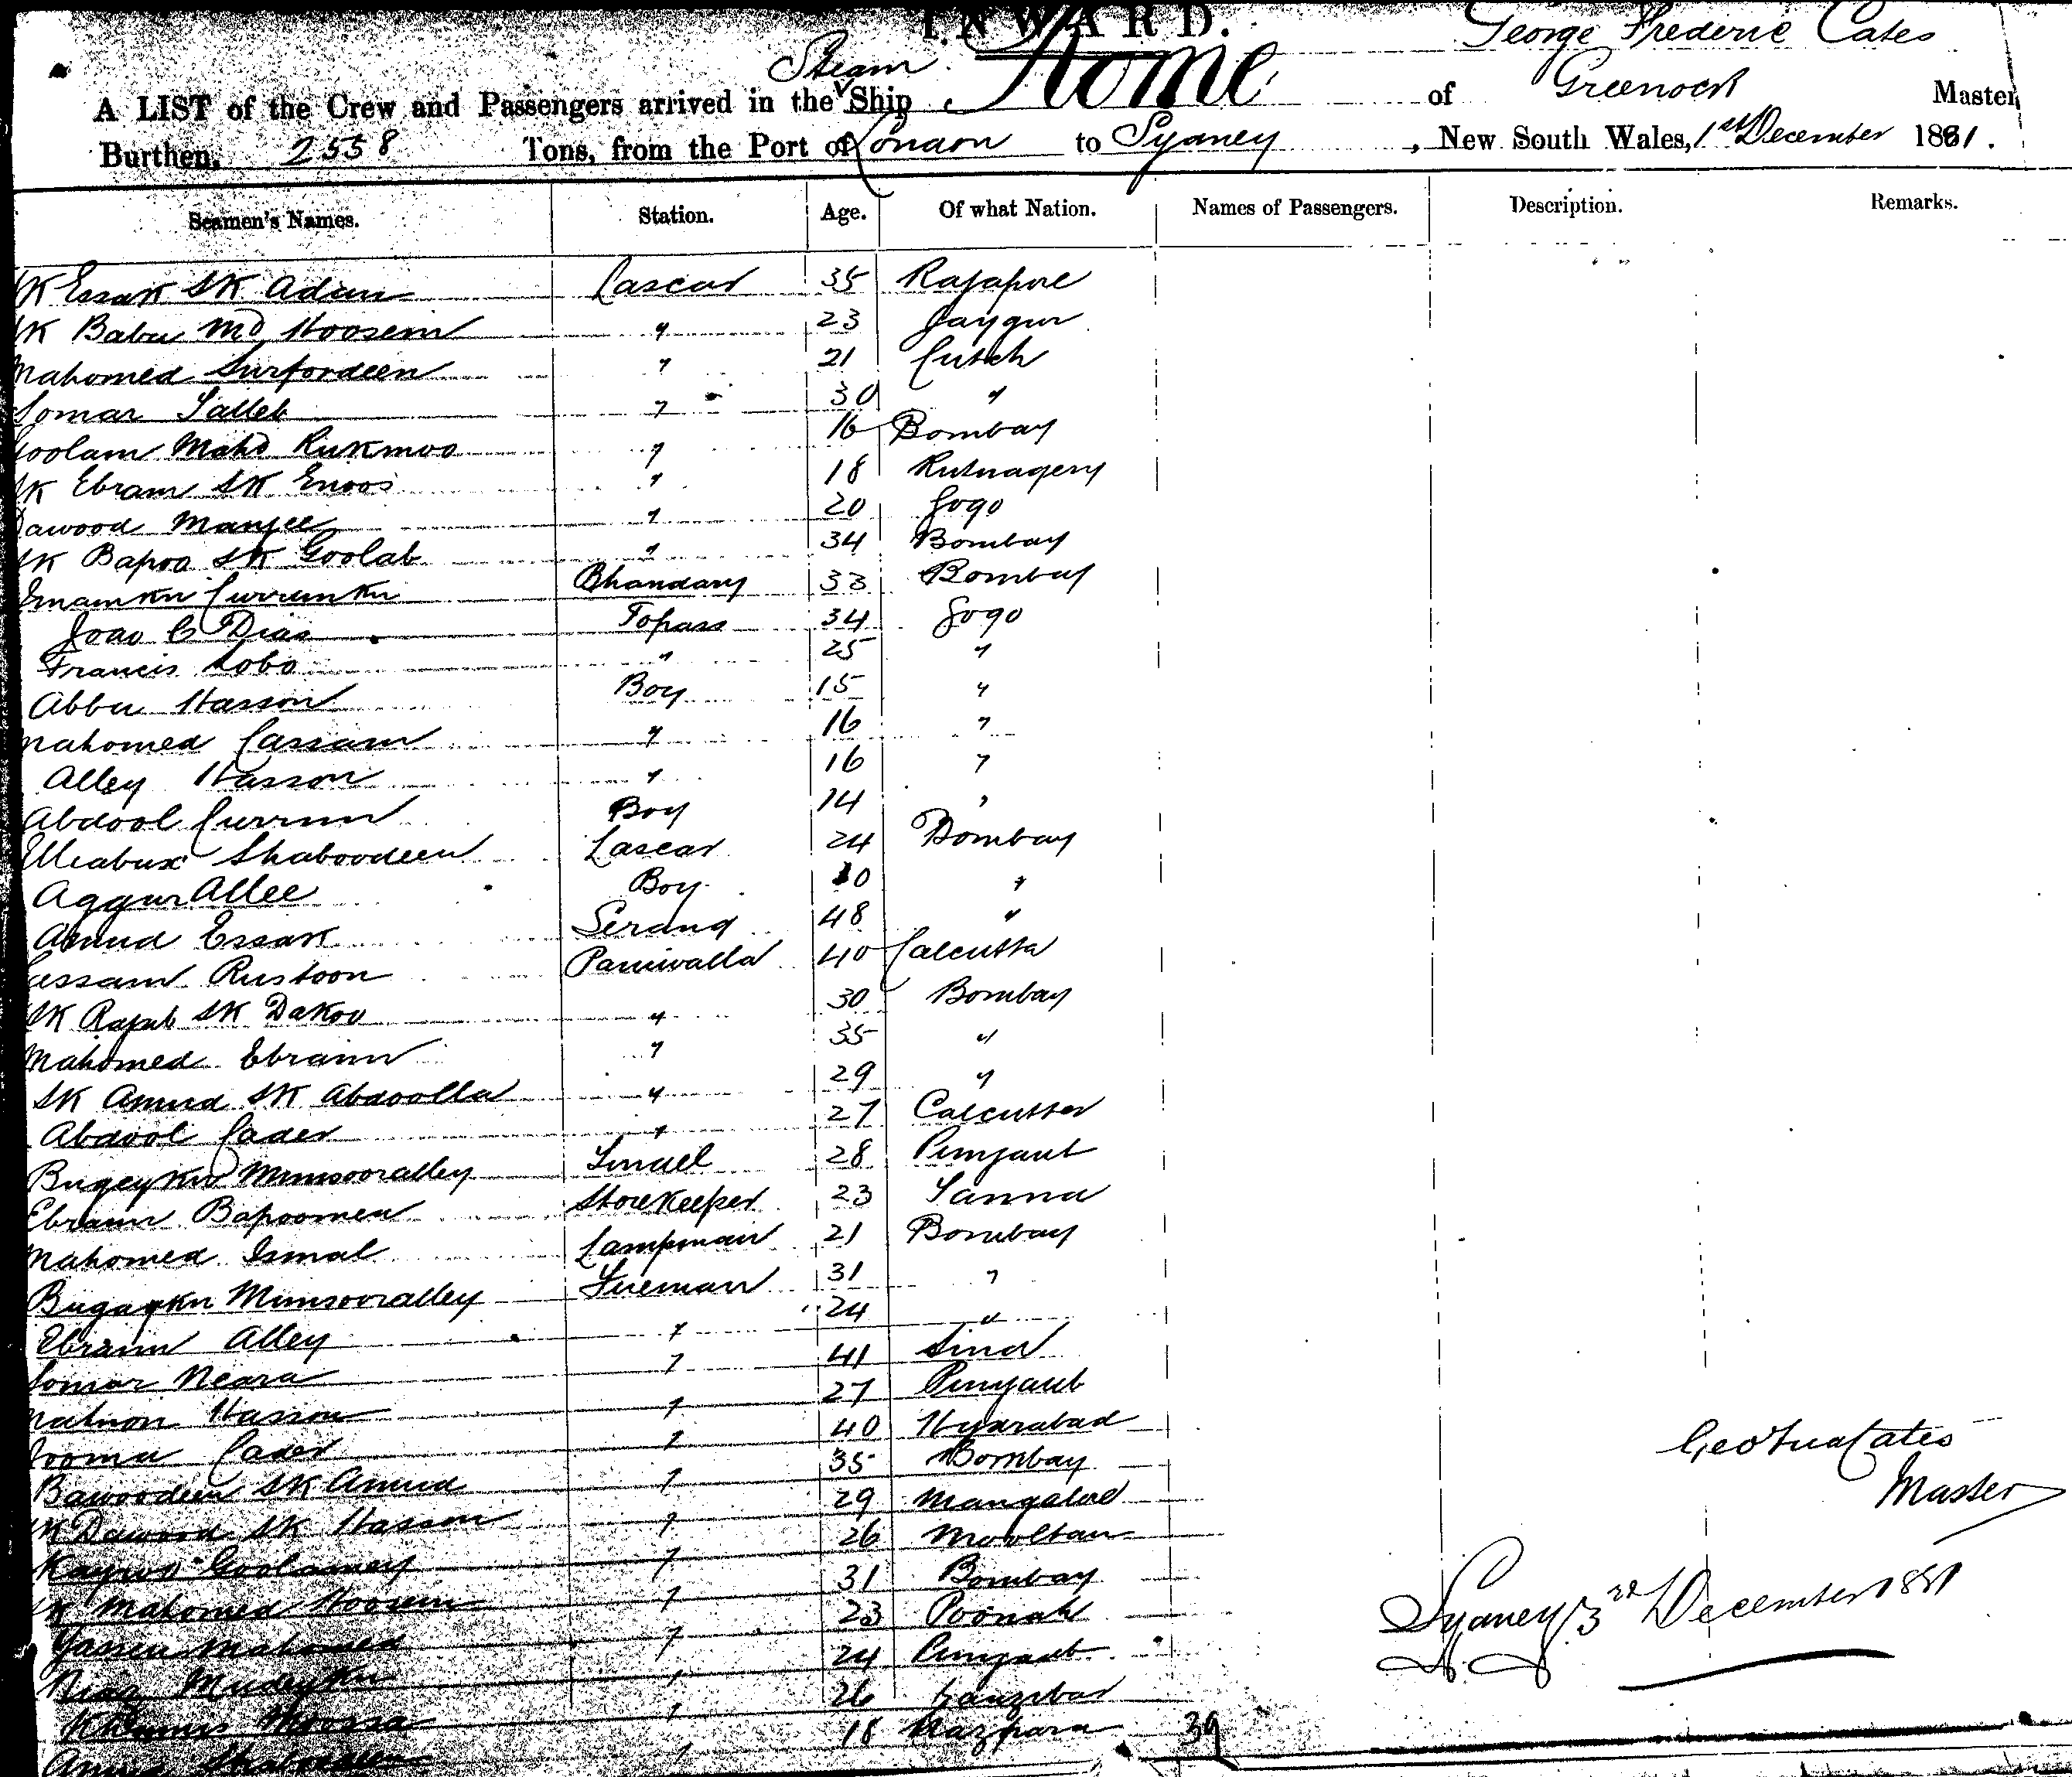 INWARD.
George Frederic Cates
A LIST of the Crew and Passengers arrived in the Steam Ship Rome of Greenock Master,
Burthen, 2558 Tons, from the Port of London to Sydney, New South Wales, 1st December 1881.
Seamen's Names. Station. Age. Of what Nation. Names of Passengers. Description. Remarks.
SK Essak SK Adam Lascar 35 Rajapore
SK Baba Md Hoosein " 23 Jaygur
Mahomed Surfordeen " 21 Cutch
Somar Salleb " 30 "
Goolam Mahd Rukmoo " 16 Bombay
SK Ebram SK Enoos " 18 Rutnagery
Dawood Manjee " 20 Gogo
SK Bapoo SK Goolab " 34 Bombay
Emamkn Currimkn Bhandary 33 Bombay
Joao C Dias Topass 34 Gogo
Francis Lobo " 25 "
Abba Hasson Boy 15 "
Mahomed Cassam " 16 "
Alley Hasson " 16 "
Abdool Currim Boy 14 "
Elleabux Shaboodeen Lascar 24 Bombay
Aggur Allee Boy "
Amud Essak Serang 48 "
Cassam Rustoon Paniwalla 40 Calcutta
SK Rajab SK Dakoo " 30 Bombay
Mahomed Ebraim " 35 "
SK Amud SK Abdoolla " 29 "
Abdool Cader " 27 Calcutta
Bugeykn Munsooralley Tindel 28 Punjaub
Ebraim Bapoomea Storekeeper 23 Tanna
Mahomed Ismal Lampman 21 Bombay
Bugaykn Munsooralley Fireman 31 "
Ebraim Alley " 24 "
Somar Neara " 41 Sind
Hasson " 27 Punjaub
Jooma Cader " 40 Hydrabad
Bawoodeen SK Amud " 35 Bombay
SK Dawood SK Hasson " 29 Mangalore
Goolamey " 26 Mooltan
SK Mahomed Hoosein " 31 Bombay
Yassen Mahomed " 23 Poonah
" 24 Punjaub
Moosa " 26 Zanzibar
Shaboodeen " 18 Nazpara 39
Geo Fred Cates
Master
Sydney 3rd December 1881